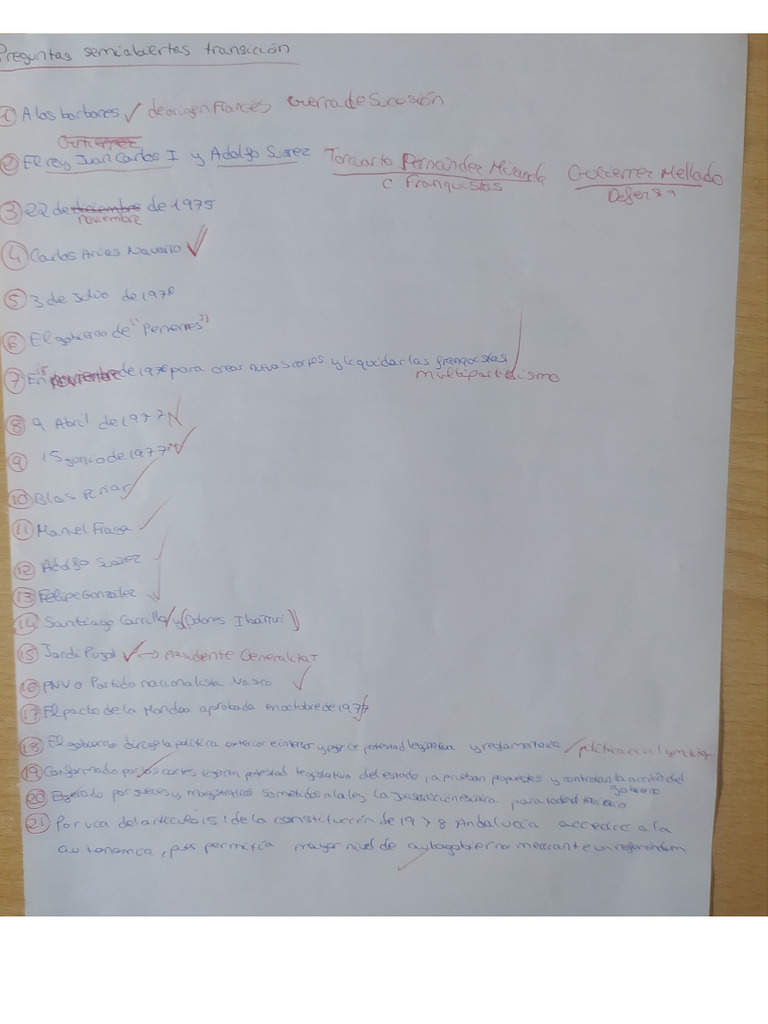 Preguntas semiabiertas transición
① A los borbones ✓ de origen Francés Guerra de Sucesión
Gutierrez
② El rey Juan Carlos I y Adolfo Suarez Torcuato Fernández Miranda Gutierrez Mellado
C Franquistas Defensa
③ 22 de diciembre de 1975
noviembre
④ Carlos Arias Navarro ✓
⑤ 3 de Julio de 1976
⑥ El gobierno de "Penenes"
⑦ En noviembre de 1976 para crear nuevas cortes y liquidar las franquistas
multipartidismo
⑧ 9 Abril de 1977 ✓
⑨ 15 junio de 1977 ✓
⑩ Blas Piñar ✓
⑪ Manuel Fraga ✓
⑫ Adolfo Suarez
⑬ Felipe González ✓
⑭ Santiago Carrillo ✓ y (Dolores Ibarruri)
⑮ Jordi Pujol ✓ → presidente Generalitat
⑯ PNV o Partido nacionalista Vasco ✓
⑰ El pacto de la Moncloa aprobada en octubre de 1977
⑱ El gobierno dirige la política exterior e interior y ejerce potestad legislativa y reglamentaria
⑲ Conformado por las cortes ejercen potestad legislativa del estado, aprueban propuestos y controlan la acción del
gobierno
⑳ Ejercido por jueces y magistrados sometidos a la ley, la Jurisdicción es única para todo el
㉑ Por vía del artículo 151 de la constitución de 1978 Andalucía accedió a la
autonomía, pues permitía mayor nivel de autogobierno mediante un referéndum